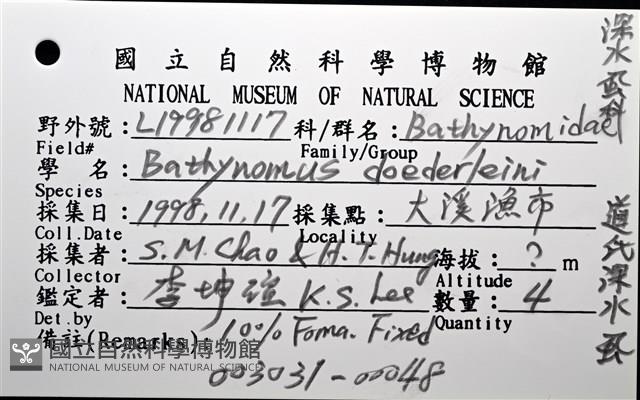 國立自然科學博物館
NATIONAL MUSEUM OF NATURAL SCIENCE
野外號:L19981117 科/群名:Bathynomidae
Field# Family/Group
學 名:Bathynomus doederleini
Species
採集日:1998.11.17 採集點:大溪漁市
Coll.Date Locality
採集者:S.M.Chao & H.T.Hung 海拔:? m
Collector Altitude
鑑定者:李坤瑄 K.S. Lee 數量:4
Det.by Quantity
備註(Remarks): 10% Foma. Fixed
003031-00048
深水虱科
道氏深水虱
國立自然科學博物館
NATIONAL MUSEUM OF NATURAL SCIENCE